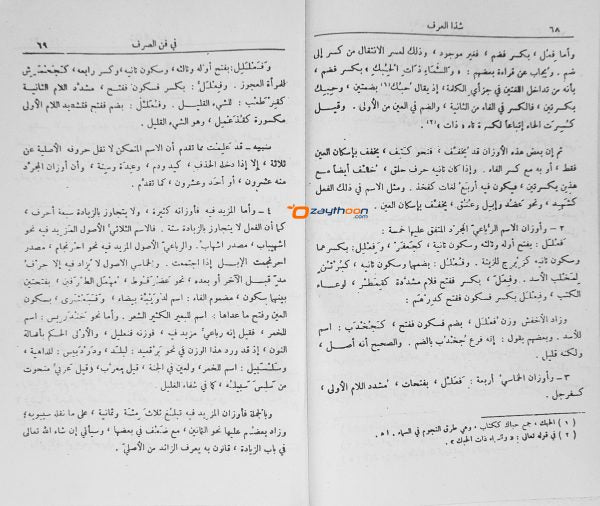 ٦٨
شذا العرف
وأما فِعُل ، بكسر فضم ، فغير موجود ، وذلك لعسر الانتقال من كسر إلى
ضم . ويُجاب عن قراءة بعضهم : « والسَّمَاءِ ذَاتِ الحِبُكِ » بكسر فضم ،
بأنه من تداخل اللغتين في جزأي الكلمة ، إذ يقال حُبُك (١) بضمتين ، وحِبِك
بكسرتين ، فالكسر في الفاء من الثانية ، والضم في العين من الأولى . وقيل
كُسِرت الحاء إتباعاً لكسرة تاء « ذات » (٢) .
ثم إن بعض هذه الأوزان قد يُخفَّف ، فنحو كَتِف ، يخفف بإسكان العين
فقط ، أو به مع كسر الفاء . وإذا كان ثانيه حرف حلق ، خفف أيضاً مع
هذين بكسرتين ، فيكون فيه أربع لغات كفخذ . ومثل الاسم في ذلك الفعل
كشَهِد ، ونحو عَضُد وإبِل وعُنُق ، يخفف بإسكان العين .
٢ – وأوزان الاسم الرباعيّ المجرد المتفق عليها خمسة :
فَعْلَل : بفتح أوله وثالثه وسكون ثانيه ، كجعفر ، وفِعْلِل : بكسرهما
وسكون ثانيه كزِبْرِج للزينة . وفُعْلُل : بضمهما وسكون ثانيه ، كبُرْثُن
لمِخْلَب الأسد . وفِعَلّ : بكسر ففتح فلام مشدّدة كقِمَطْر ، لوعاء
الكتب ، وفِعْلَل بكسر فسكون ففتح كدِرْهَم .
وزاد الأخفش وزن فُعْلَل ، بضم فسكون ففتح ، كجُخْدَب : اسم
للأسد . وبعضهم يقول : إنه فرع جُخْدُب بالضم . والصحيح أنه أصل ،
ولكنه قليل .
٣ – وأوزان الخماسيّ أربعة : فَعَلَّل ، بفتحات ، مُشدد اللام الأولى ،
كسفرجل .
( ١ ) الحبك ، جمع حباك ككتاب ، وهي طرق النجوم في السماء . اه .
( ٢ ) في قوله تعالى : « والسماء ذات الحبك » .
في فن الصرف
٦٩
وفَعْلَلِل : بفتح أوله وثالثه ، وسكون ثانيه ، وكسر رابعه ، كجَحْمَرِش
للمرأة العجوز . وفِعْلَلّ : بكسر فسكون ففتح ، مشدّد اللام الثانية
كقِرْطَعْب : للشيء القليل . وفُعَلِّل : بضم ففتح فتشديد اللام الأولى
مكسورة كقُذَعْمِل ، وهو الشيء القليل .
تنبيه – قد علمت مما تقدم أن الاسم المتمكن لا تقل حروفه الأصلية عن
ثلاثة ، إلا إذا دخله الحذف ، كيد ودم ، وعِدَة وسِنة ، وأن أوزان المجرَّد
منه عشرون ، أو أحد وعشرون ، كما تقدّم .
٤ – وأما المزيد فيه فأوزانه كثيرة ، ولا يتجاوز بالزيادة سبعة أحرف ،
كما أن الفعل لا يتجاوز بالزيادة ستة . فالاسم الثلاثيّ الأصول المزيد فيه نحو
اشهيباب ، مصدر اشهابّ . والرباعيّ الأصول المزيد فيه نحو احرنجام ، مصدر
احرنجمت الإبل إذا اجتمعت . والخماسي الأصول لا يُزاد فيه إلا حرف
مدّ قبل الآخر أو بعده ، نحو عَضْرَفُوط ، مُهْمَل الطرفين ، بفتحتين
بينهما سكون ، مضموم الفاء : اسم لدُوَيْبَّة بيضاء ، وقَبَعْثَرَى ، بسكون
العين وفتح ما عداها : اسم للبعير الكثير الشعر . وأما نحو خَنْدَرِيس : اسم
للخمر ، فقيل إنه رباعيّ مزيد فيه ، فوزنه فنعليل ، والأوْلى الحكم بأصالة
النون ، إذ قد ورد هذا الوزن في نحو بَرْقَعِيد : لبلد ، ودَرْدَبِيس : للداهية ،
وسَلْسَبِيل : اسم للخمر ، ولعين في الجنة ، قيل معرَّب ، وقيل عربيّ منحوت
من سلس سبيله ، كما في شفاء الغليل .
وبالجملة فأوزان المزيد فيه تبلغ ثلاث مِئة وثمانية ، على ما نقله سيبويه ؛
وزاد بعضهم عليها نحو الثمانين ، مع ضعف في بعضها ، وسيأتي إن شاء الله تعالى
في باب الزيادة ، قانون به يعرف الزائد من الأصليّ .
zaythoon.com